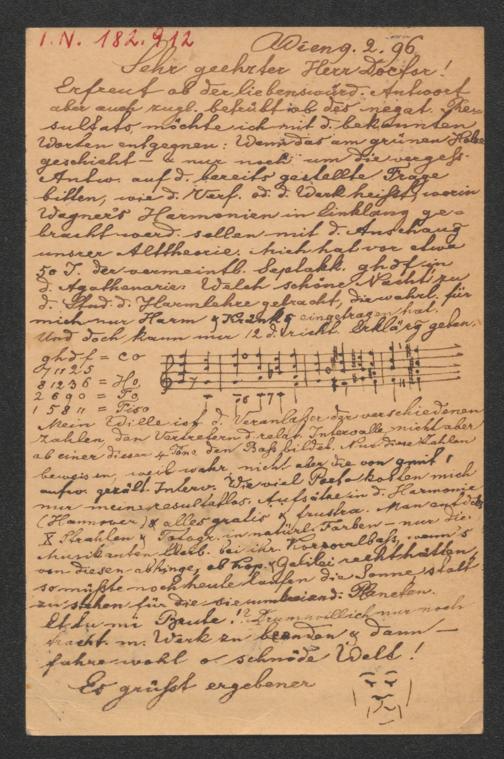 I. N. 182.912
Wien 9. 2. 96
Sehr geehrter Herr Doctor!
Erfreut ob der liebenswürd. Antwort
aber auch zugl. betrübt ob des negat. Re=
sultats, möchte ich mit d. bekannten
Worten entgegnen: Wenn das am grünen Holze
geschieht u nur noch um die
Antw. auf d. bereits gestellte Frage
bitten, wie d. Verf. od. d. Werk heißt, worin
Wagner's Harmonien in Einklang ge=
bracht werd. sollen mit d. Anschaug
unsrer Alttheorie. Mich hat vor etwa
50 J. der vermeintl. Septakk. ghdf in
d. Agathenarie: Welch schöne Nacht zu
d. Stud. d. Harmlehre gebracht, die wahrl. für
mich nur Harm & eingetragen hat.
Und doch kann nur 12 d. Erklärg geben.
ghdf = Co
7 11 2 5
8 12 3 6 = Ho
2 6 9 0 = Fo
1 5 8 11 = Fiso
7
76 7
Mein Wille ist d. Veranlasser der verschiedenen
Zahlen, den Vertretern d. relat. Intervalle nicht aber
ab einer dieser 4 Töne den Baß bildet. Nur diese Zahlen
beweisen, weil wahr, nicht aber die von
aufw. gezält. Interv. Wie viel kosten mich
nur meine resultatlos. Aufsätze in d. Harmonie
(Hannover) & alles gratis & frustra. Man
X Strahlen & Fotogr. in natürl. Farben — nur die
Musikanten bleib. bei ihr. wenn's
von diesen abhinge, ob Kop. & Galilei recht hätten,
so müßte noch heute laufen die Sonne statt
zu stehen für die sie umkreisend. Planeten.
Et tu mi Brute!? Drum will ich nur noch
tracht. m. Werk zu beenden & dann —
fahre wohl o schnöde Welt!
Es grüßt ergebener